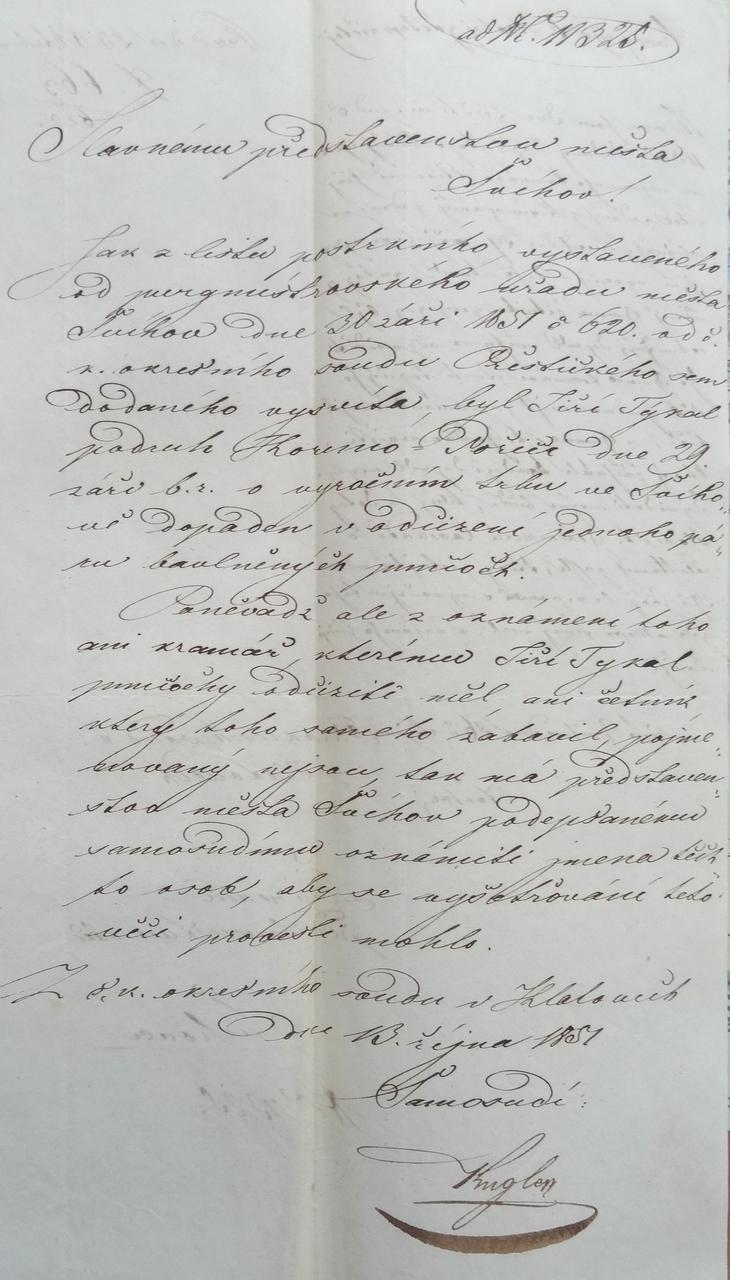 ad N. 11325.
Slavnému představenstvu města
Švihov!
Jak z listu postrkního, vystaveného
od purgmistrovského úřadu města
Švihov dne 30 září 1851 č 620. od c.
k. okresního soudu Přestického sem
dodaného vysvítá, byl Jiří Tykal
podruh Poříčí dne 29.
září b.r. o vyročním trhu ve Švího-
vě dopaden v odcizení jednoho pá-
ru bavlněných punčoch.
Poněvadž ale z oznámení toho
ani kramář, kterému Jiří Tykal
punčochy odciziti měl ani četník
ktery toho samého zabavil, pojme-
novaný nejsou, tak má představen-
stvo města Švíhov podepsanému
samosudímu oznámiti jmena těch
to osob, aby se vyšetřování této
věci provesti mohlo.
Z c. k. okresního soudu v Klatovech
dne 13. října 1851
Samosudí: